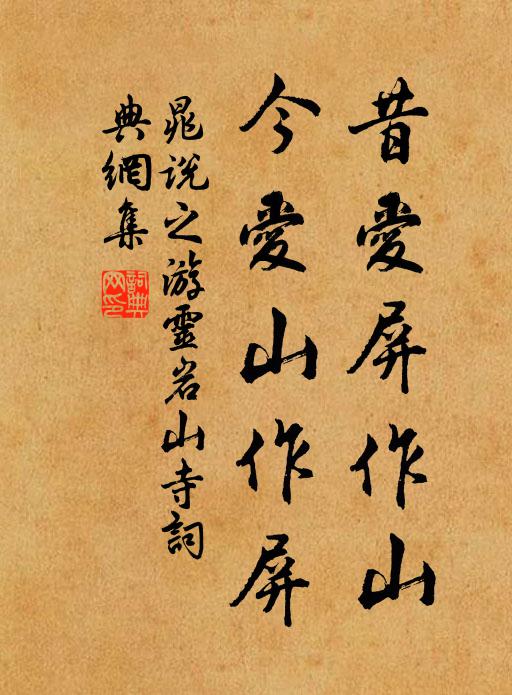 昔愛屏作山
今愛山作屏
晁說之游靈岩山寺詞
典網集
詞典
网印